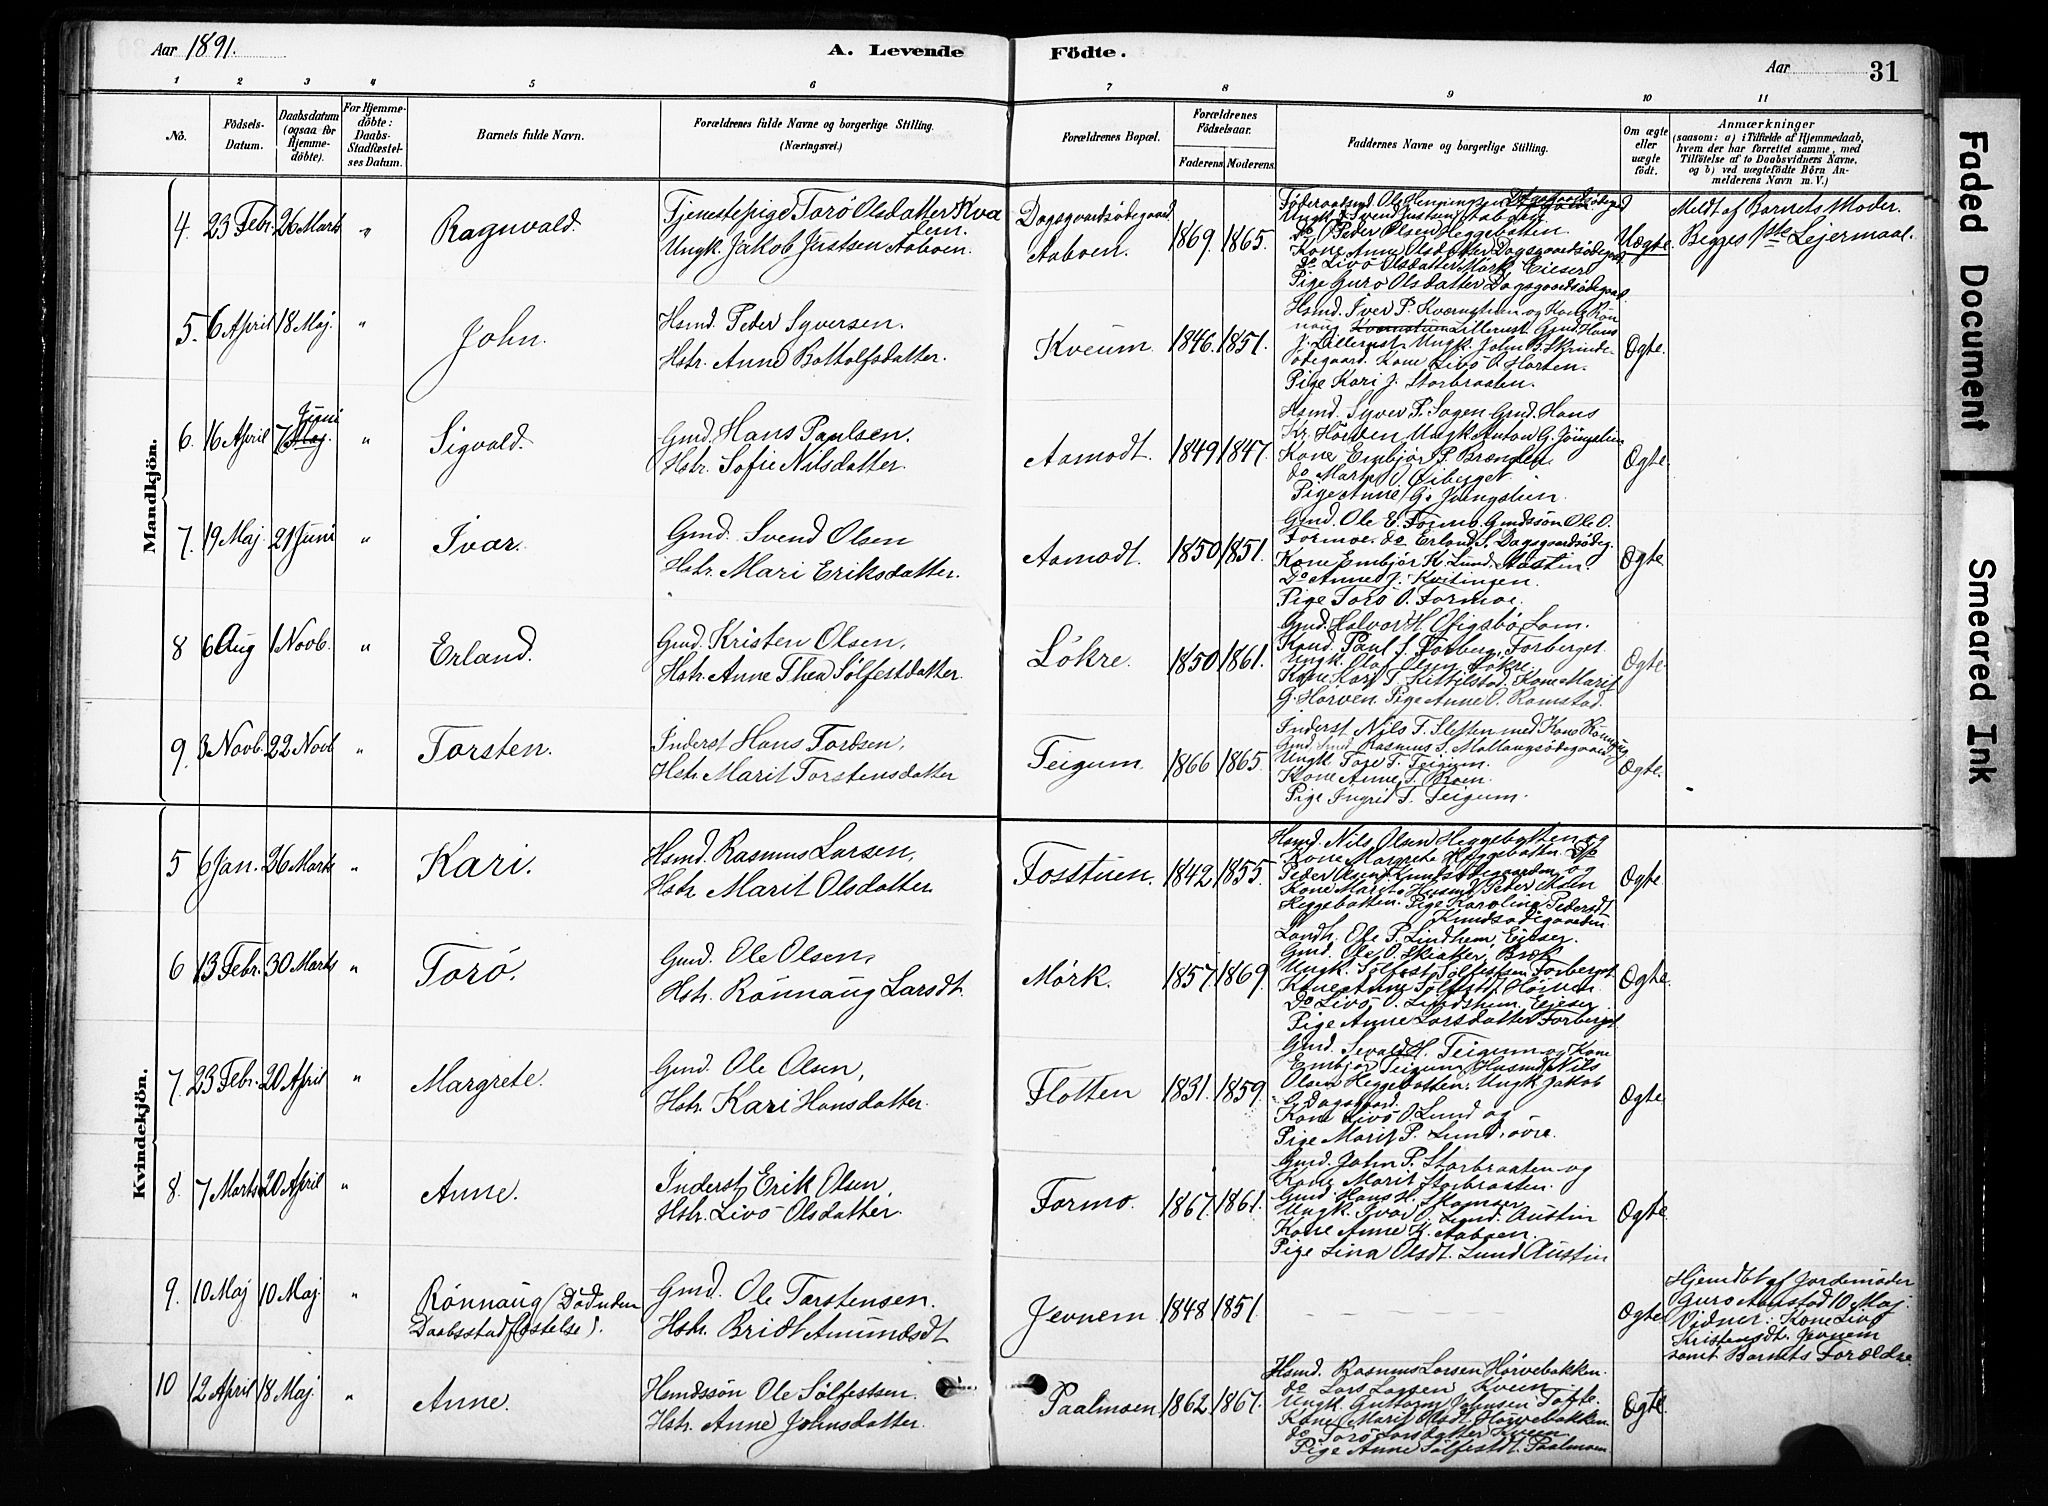 Aar 1891.
A. Levende Födte.
Aar
31
1 2 3 4 5 6 7 8 9 10 11
No.
Födsels-Datum.
Daabsdatum (ogsaa för Hjemme-döbte).
For Hjemme-döbte: Daabs-Stadfæstel-ses Datum.
Barnets fulde Navn.
Forældrenes fulde Navne og borgerlige Stilling. (Næringsvei.)
Forældrenes Bopæl.
Forældrenes Födselsaar.
Faderens. Moderens.
Faddernes Navne og borgerlige Stilling.
Om ægte eller uægte födt.
Anmærkninger
(saasom: a) i Tilfælde af Hjemmedaab,
hvem der har forrettet samme, med
Tilföielse af to Daabsvidners Navne,
og b) ved uægtefödte Börn An-
melderens Navn m. V.)
Mandkjön.
4. 23 Febr. 26 Marts " Ragnvald.
Tjenestepige Torö Olsdatter Kva
len.
Ungk. Jakob Justsen Aaboen.
Dagsgaardsödegaard
Aaboen.
1869. 1865.
Föderaadsmd Ole Henningsen
Ungk. Svend Justsen
do Peder Olsen Heggebotten.
Kone Anne Olsdatter Dagsgaardsödegaard
do Livö Olsdatter Mörk Eieser
Pige Guro Olsdatter Dagsgaardsödegaard.
Uægte.
Meldt af Barnets Moder.
Begges 1ste Lejermaal.
5. 6 April 18 Maj. " John.
Hsmd. Peder Syversen.
Hstr. Anne Bottolfsdatter.
Kveum. 1846. 1851.
Hsmd. Iver P. Kvernstuen og Kone Rön
naug Kvernstuen Lillerust Gmd. Hans
J. Lillerust Ungk. John Skrinde-
ödegaard. Kone Livö O. Horten.
Pige Kari J. Storbraaten.
Ægte.
6. 16 April 7 Maj Juni " Sigvald.
Gmd. Hans Paulsen.
Hstr. Sofie Nilsdatter.
Aamodt. 1849 1847.
Hsmd. Syver P. Sagen Gmd. Hans
Kr. Hörven Ungk. Anton G.
Kone Embjör P. Brænden.
do Marit O. Öiberget.
Pige Anne G.
Ægte.
7. 19 Maj 21 Juni " Ivar.
Gmd. Svend Olsen
Hstr. Mari Eriksdatter.
Aamodt. 1850 1851.
Gmd. Ole E. Formo. Gmdssön Ole O.
Formoe. do Erland S. Dagsgaardsödeg.
Kone Embjör K. Lund, Austin.
Do Anne J. Kvitingen.
Pige Torö O. Formoe.
Ægte
8 6 Aug 1 Novb. " Erland.
Gmd. Kristen Olsen,
Hstr. Anne Thea Sölfestdatter.
Lökre. 1850 1861.
Gmd. Halvor H. Lom.
Kond. Paul S. Forberg, Forberget
Ungk. Olaf Olsen Lökre.
Kone Kari T. Kittilstad. Kone Marit
G. Hörven. Pige Anne O. Ramstad.
Ægte.
9. 3 Novb. 22 Novb " Torsten.
Inderst Hans Tordsen,
Hstr. Marit Torstensdatter
Teigum 1866 1865.
Inderst. Nils T. Sletten med Kone Rönnaug
Gmd. Rasmus T.
Ungk Tore T. Teigum.
Kone Anne T. Roen.
Pige Ingrid T. Teigum.
Ægte.
Kvindekjön.
5 6 Jan. 26 Marts " Kari.
Hsmd. Rasmus Larsen,
Hstr. Marit Olsdatter.
Fosstuen. 1842 1855.
Hsmd. Nils Olsen Heggebotten og
Kone Margrete Heggebotten. Do
Peder Olsen Knudsödegaarden og
Kone Marit. Husmd Peder Olsen
Heggebotten. Pige Karoline Pedersdt
Knudsödegaarden
Ægte
6 13 Febr. 30 Marts " Torö.
Gmd. Ole Olsen,
Hstr. Rönnaug Larsdt.
Mörk. 1857. 1869.
Landh. Ole P. Lindhem, Eieser.
Gmd. Ole O. Bræk
Ungk. Sölfest Sölfestsen Forberget
Kone Anne Sölfestdt Hörven
Do Livö O. Lindshem Eieser
Pige Anne Larsdatter Forberget.
Ægte.
7. 23 Febr. 20 April " Margrete.
Gmd. Ole Olsen,
Hstr. Kari Hansdatter.
Flotten 1831. 1859.
Gmd. Sevald H. Teigum og Kone
Embjör Teigum. Husmd Nils
Olsen Heggebotten. Ungk Jakob
G. Dagsgaard.
Kone Livö O. Lund og
Pige Marit P. Lund, övre.
Ægte
8. 7 Marts 20 April " Anne.
Inderst Erik Olsen,
Hstr. Livö Olsdatter.
Formo. 1867. 1861.
Gmd. John P. Storbraaten og
Kone Marit Storbraaten.
Gmd. Hans H.
Ungk. Ivar O. Lund. Austin
Kone Anne K. Aaboen.
Pige Lina Olsdt. Lund Austin
Ægte.
9. 10 Maj 10 Maj. " Rönnaug (Död uden
Daabsstadfæstelse).
Gmd. Ole Torstensen.
Hstr. Bridt Amundsdt
Jevnem 1848 1851.
Ægte
Hjemdöbt af Jordemoder
Guro Aanstad 10 Maj.
Vidner: Kone Livö
Kristensdt. Jevnem
samt Barnets Forældre
10 12 April 18 Maj. " Anne.
Hsmdssön Ole Sölfestsen.
Hstr. Anne Johnsdatter.
Paalmoen. 1862. 1867.
Hsmd. Rasmus Larsen Hörvebakken.
do Lars Larsen Kveen
Ungk. Guttorm Johnsen Tofte.
Kone Marit Olsdt. Hörvebakken.
do Torö Larsdatter Kveen.
Pige Anne Sölfestdt. Paalmoen
Ægte.
Faded Document
Smeared Ink